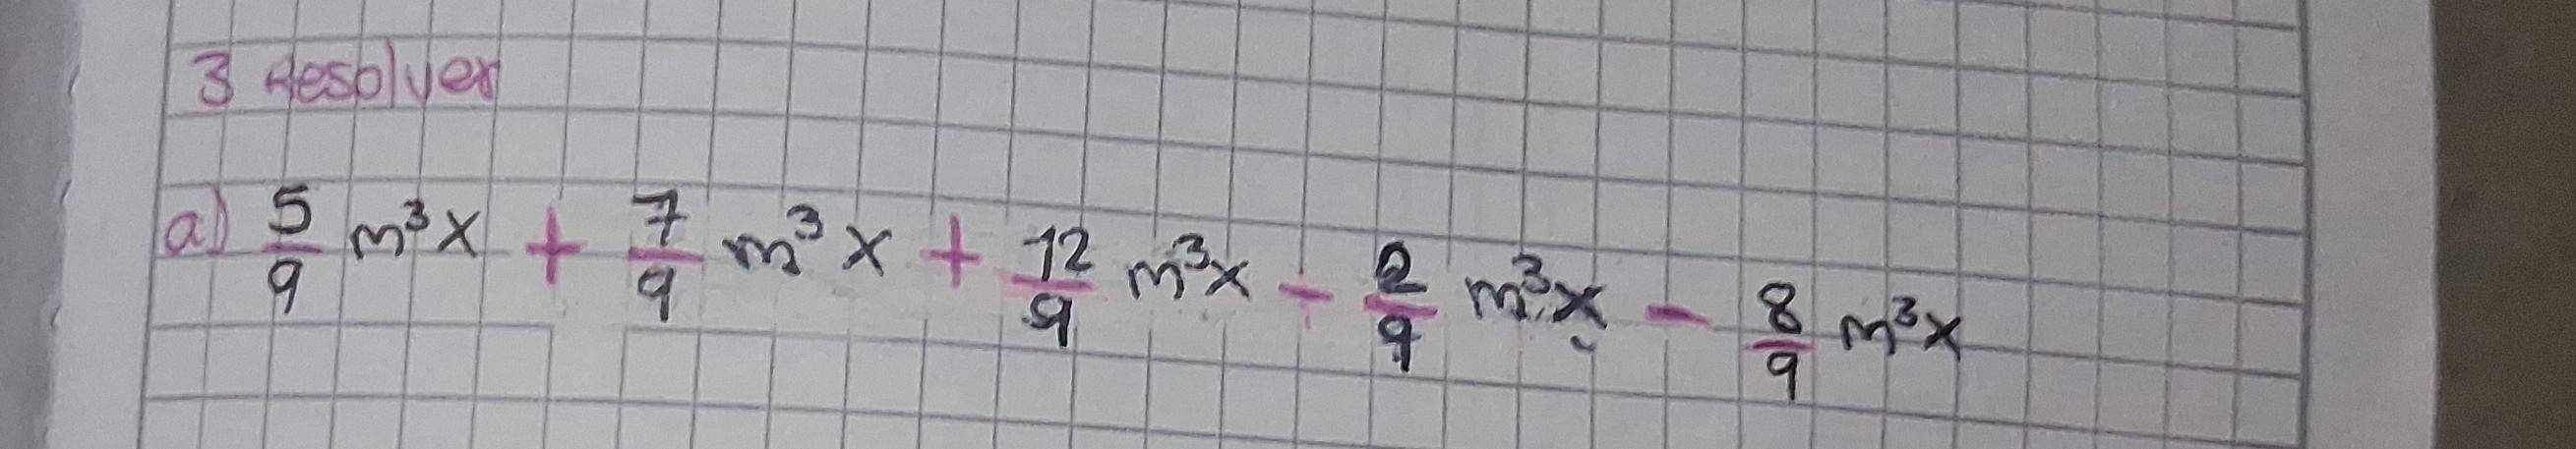 3 Resolver
a) 5/9 m³x + 7/9 m³x + 12/9 m³x - 2/9 m³x - 8/9 m³x